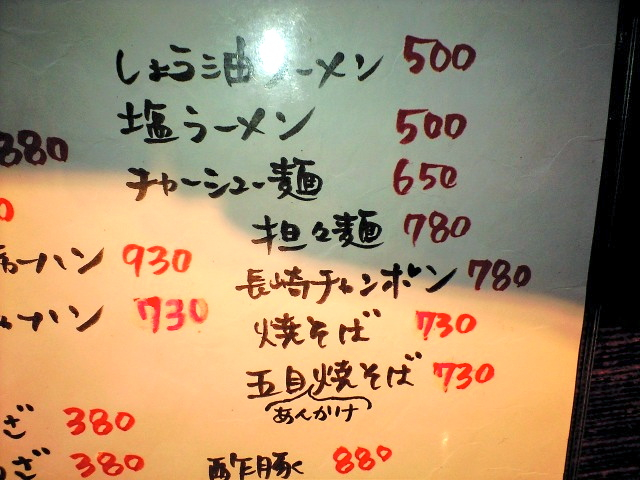 しょう油ラーメン 500
塩ラーメン 500
880
チャーシュー麺 650
0
担々麺 780
ーハン 930
長崎チャンポン 780
ャーハン 730
焼そば 730
五目焼そば 730
あんかけ
ざ 380
ざ 380
酢豚 880